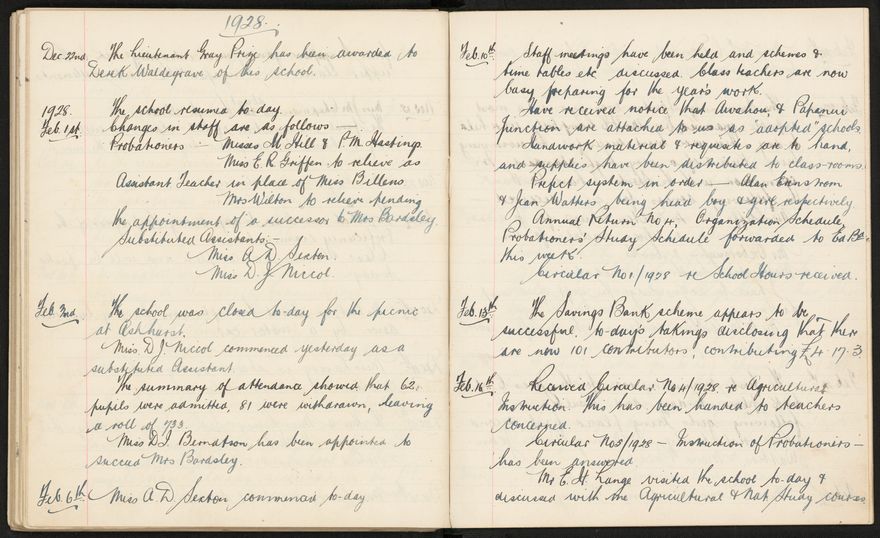 1928.
Dec. 22nd The Lieutenant Gray Prize has been awarded to
Derek Waldegrave of this school.
1928. The school resumed to-day.
Feb. 1st. Changes in staff are as follows —
Probationers Misses M. Hill & P. M. Hastings
Miss E. R. Griffen to relieve as
Assistant Teacher in place of Miss Billens
Mrs Wilton to relieve pending
the appointment of a successor to Mrs Bardsley.
Substituted Assistants:—
Miss A. D. Sexton.
Miss D. J. Niccol.
Feb. 2nd. The school was closed to-day for the picnic
at Ashhurst.
Miss D J. Niccol commenced yesterday as a
substituted Assistant.
The summary of attendance showed that 62,
pupils were admitted, 81 were withdrawn, leaving
a roll of 733.
Miss D. J. Berndtson has been appointed to
succeed Mrs Bardsley.
Feb. 6th Miss A. D Sexton commenced to-day
Feb. 10th Staff meetings have been held and schemes &
time tables etc discussed. Class teachers are now
busy preparing for the year's work.
Have received notice that Awahou & Papanui
Junction are attached to us as adopted schools.
Handwork material & requisites are to hand,
and supplies have been distributed to class-rooms.
Prefect system in order — Alan Enustrom
& Jean Watters being head boy & girl respectively
Annual Return No 4, Organization Schedule,
Probationers' Study Schedule forwarded to Ed Bd.
this week.
Circular No 1/1928 re School Hours received.
Feb. 15th The Savings Bank scheme appears to be
successful, to-day's takings disclosing that there
are now 101 contributors, contributing £4-17-3
Feb. 16th Received Circular No 4/1928 re Agricultural
Instruction. This has been handed to teachers
concerned.
Circular No 3/1928 — Instruction of Probationers —
has been answered.
Mr E. H. Lange visited the school to-day &
discussed with me the Agricultural & Nat Study courses.